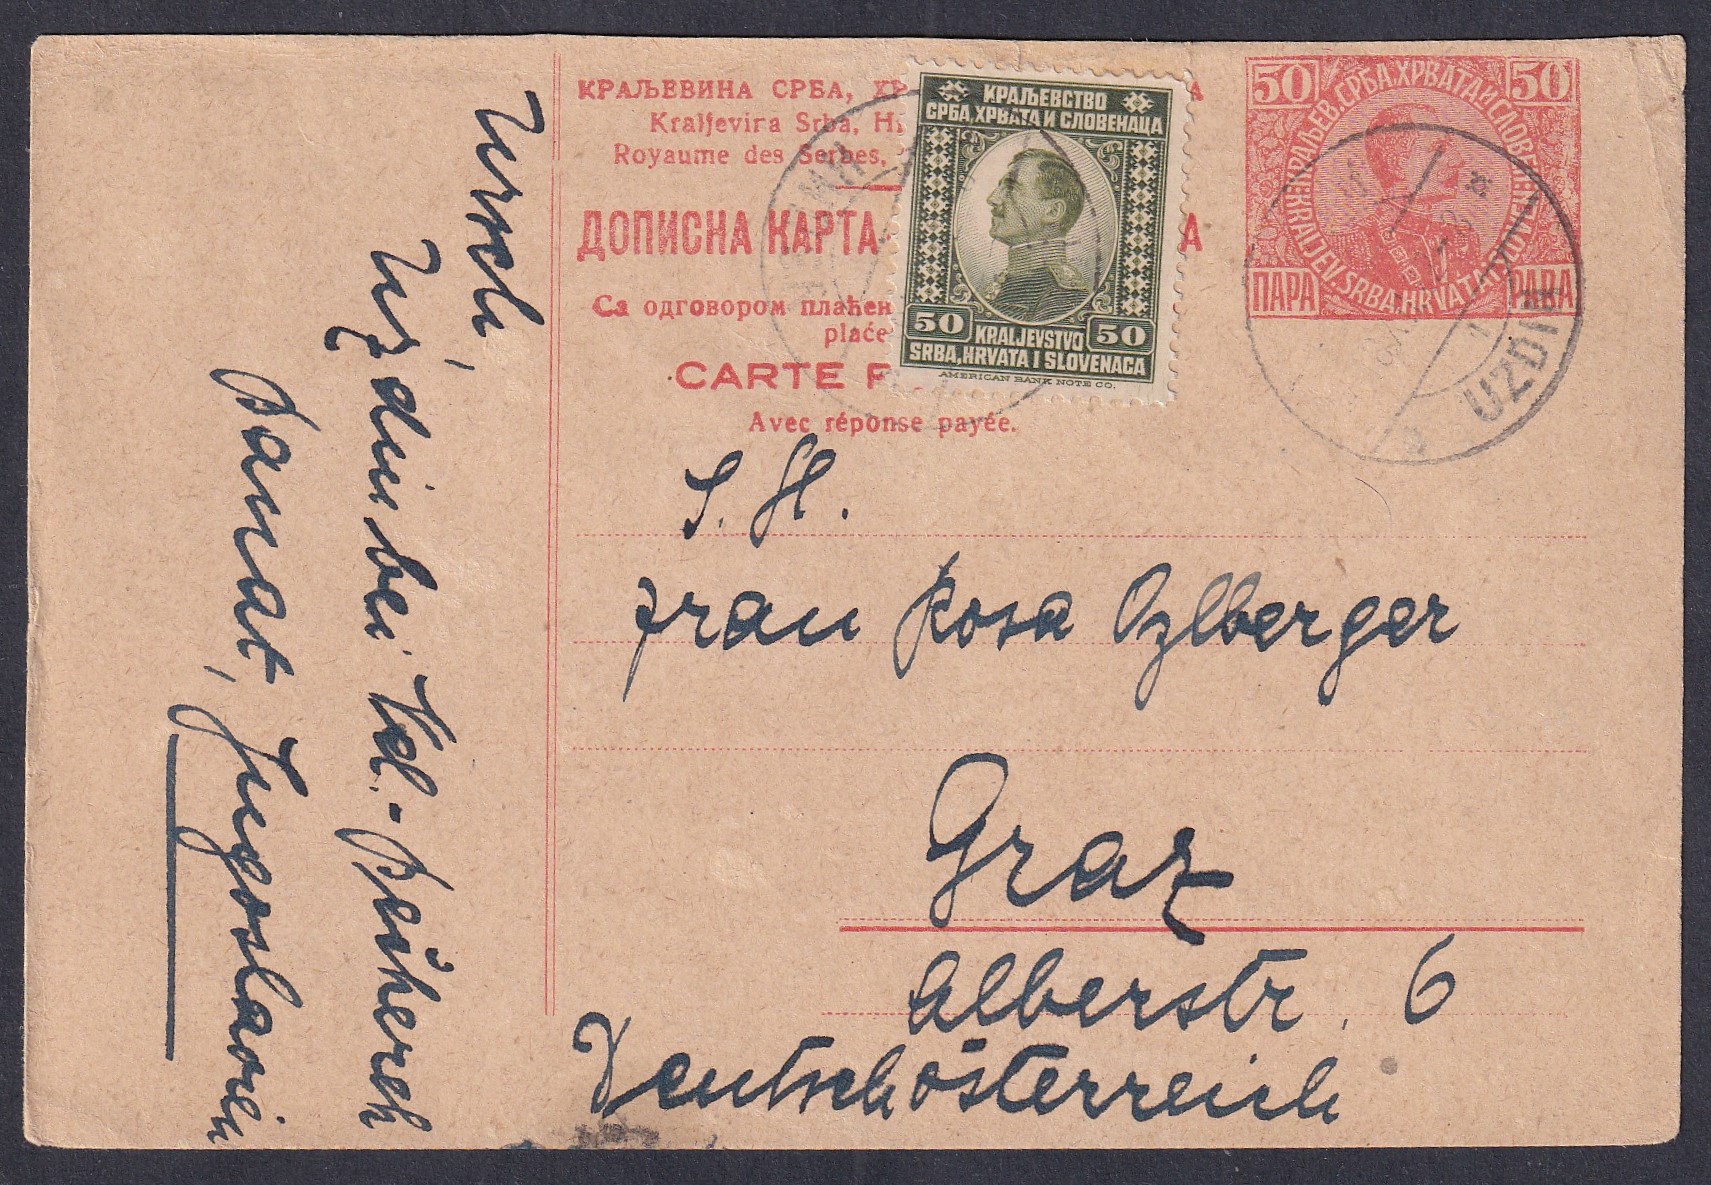 КРАЉЕВИНА СРБА,
Kraljevina Srba,
Royaume des Serbes,
ДОПИСНА КАРТА
Са одговором плаћен
plaće
CARTE P
Avec réponse payée.
КРАЉЕВСТВО
СРБА, ХРВАТА И СЛОВЕНАЦА
50 KRALJEVSTVO 50
SRBA, HRVATA I SLOVENACA
AMERICAN BANK NOTE CO.
50 50
КРАЉЕВ. СРБА. ХРВАТА И СЛОВЕНАЦА
KRALJEV. SRBA. HRVATA I SLOVENACA
ПАРА PARA
UZDIN
S. H.
Frau Rosa Ozlberger
Graz
Alberstr. 6
Deutschösterreich
Ursch,
Uzdin bei Vel.-Bečkerek
Banat, Jugoslavien